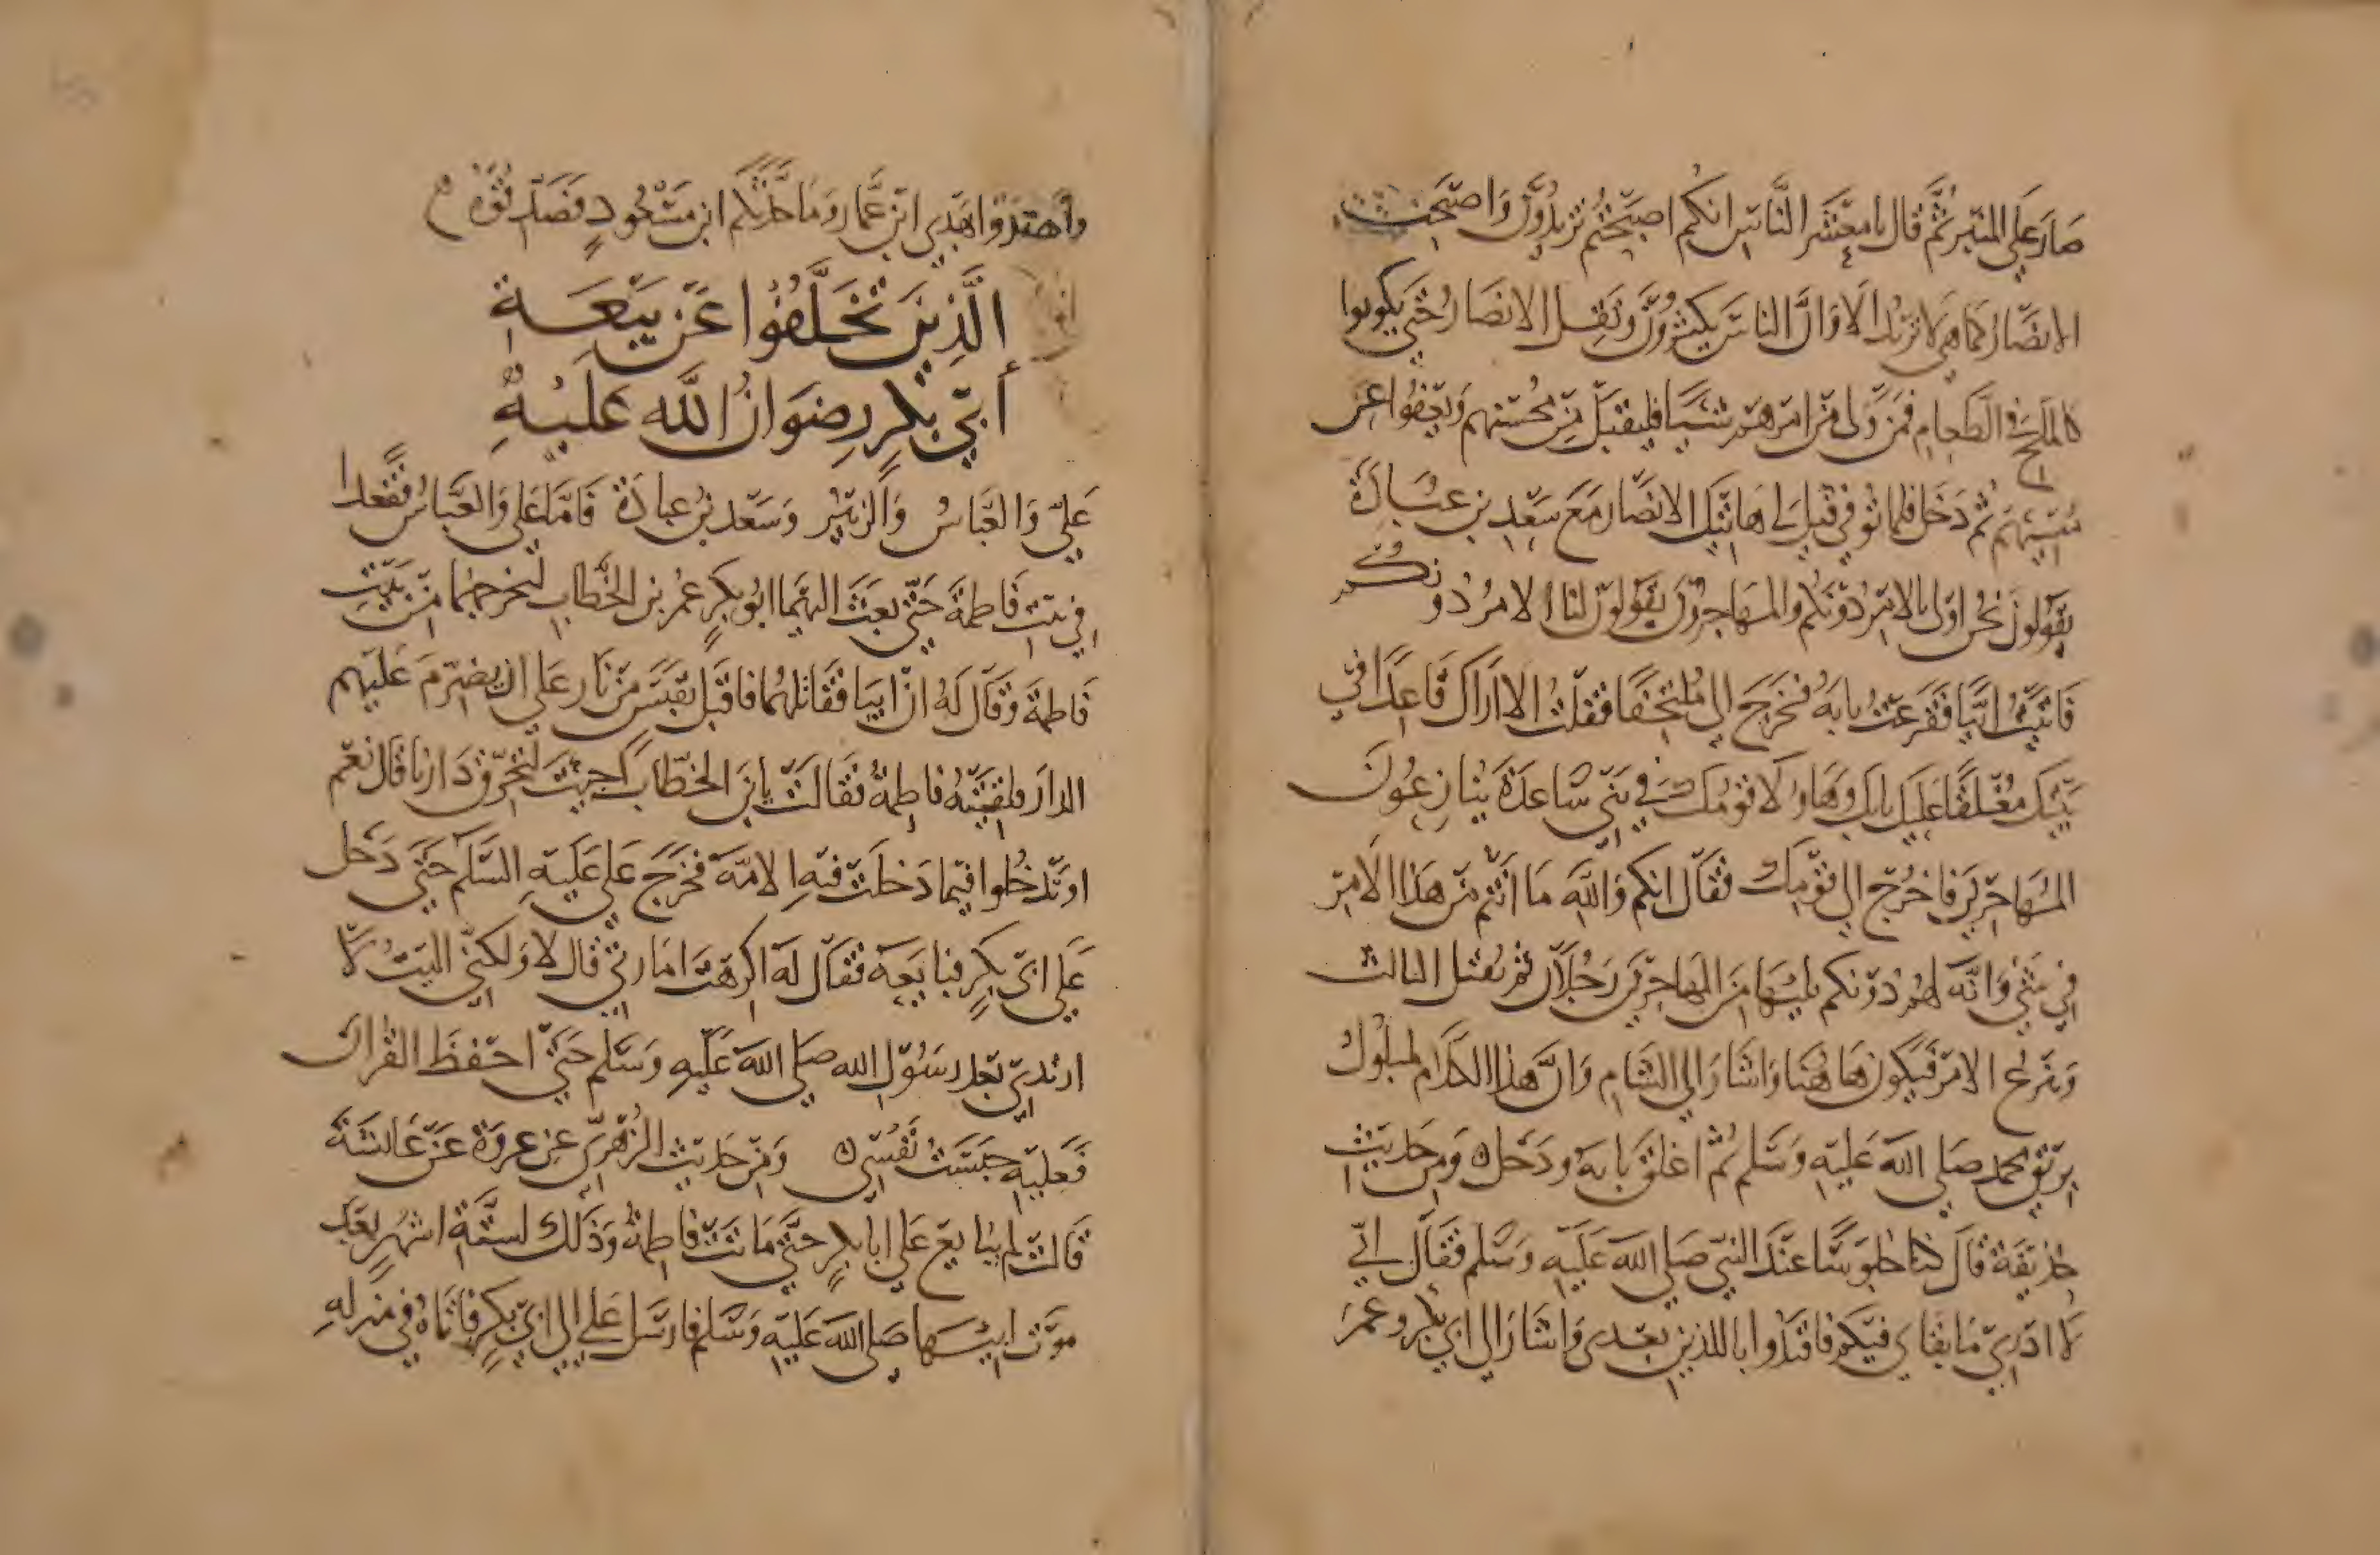 صَارَ عَلَي المنبَرِ ثُمَّ قَالَ يا معْشَر النَّاسِ انكُم اصبَحْتُم تزيدُونَ وَاصبَحَت
الانصَار كما هي لا تزيد الا وَانَّ الناسَ يكثرُونَ وَتَقِل الانصَارُ حَتي يكونوا
كالملح في الطعام فمَن وَلى من امرهم شيئا فليقبَل من مُحسنهم وَيعْفوا عن
مُسيئهم ثم دَخَل فلما تُوفي قيل لي هاتيك الانصَار مَعَ سَعْدِ بن عُبَادَة
يقولونَ نحن اولى بالامر دُونكم والمهَاجرون يقولون لنا الامرُ دُونكم
فاتيتُ ابيَّا فقَرعتُ بابَهُ فخرَجَ الي مُلتحفًا فقلتُ الا اراكَ قاعدًا في
بَيتِك مغْلقًا عَليك بابك وهَاولا قومُك في بَني سَاعدَة ينازعُونَ
المهَاجِرينَ فاخْرُج الي قومِك فقالَ انكم وَالله مَا انتُم من هَذا الامر
في شي وَانَّه لهم دُونكم يليهَا منَ المهَاجرينَ رَجُلان ثم يُقتل الثالث
وَينزعُ الامر فيكون هَاهُنَا وَاشارَ الي الشامِ وَانَّ هذا الكلام لمبلول
بريق محمد صَلي الله عَليهِ وَسَلم ثُمَّ اغلقَ بابَهُ ودَخل ومن حَديث
حذيفَة قالَ كنا جلوسًا عندَ النبي صَلي الله عَليهِ وَسَلم فقال اني
لا ادري مَا بقاي فيكم فاقتدوا باللذين بَعدى وَاشارَ الي ابي بكر وعمَر
واهتدوا بهَدي ابن عَمار وَمَا حَدثكم ابن مَسْعُودٍ فصَدقوُه
الَّذِينَ تَخَلَّفُوا عَن بَيْعَةِ
أبي بكرٍ رِضوَانُ اللَّه عَلَيْهِ
عَليٌّ وَالعَباسُ وَالزبَيْر وَسَعد بنُ عبادَة فَامَّا عَلي وَالعَبَاسُ فقعدا
في بيت فَاطمةَ حَتي بعَثَ اليهمَا ابُو بكرٍ عُمر بن الخَطاب ليخرجهما من بَيتِ
فَاطمَة وَقال لَهُ ان ابيَا فقاتلهُما فاقبَل بقبَسٍ من نَار عَلي ان يضرمَ عَليهم
الدارَ فلقيَتهُ فاطمةُ فقَالت يابن الخطابِ اجئتَ لتحَرِق دَارنا قال نعَم
اوتَدخُلوا فيما دَخلَت فيهِ الامَّة فخَرَج عَلي عَليهِ السَّلَم حَتي دَخل
عَلي ابي بكرٍ فبايَعهُ فقال لَهُ اكرهتَ امَارتي قال لا وَلكنّي اليتُ لا
ارتدِي بَعد رسُول الله صَلي الله عَليهِ وَسَلم حَتي احفظَ القرانَ
فعليهِ حبَستُ نفسي وَمن حَديث الزهريِّ عن عروَة عَن عَائشة
قَالت لم يُبايع عَلي ابا بكرٍ حتي مَاتَت فاطمةُ وَذَلك لستَّة اشهُرٍ بَعد
موَت ابيهَا صَلي الله عَليهِ وَسَلم فارسَل عَلي الي ابي بكرٍ فاتَاهُ في منزلهِ